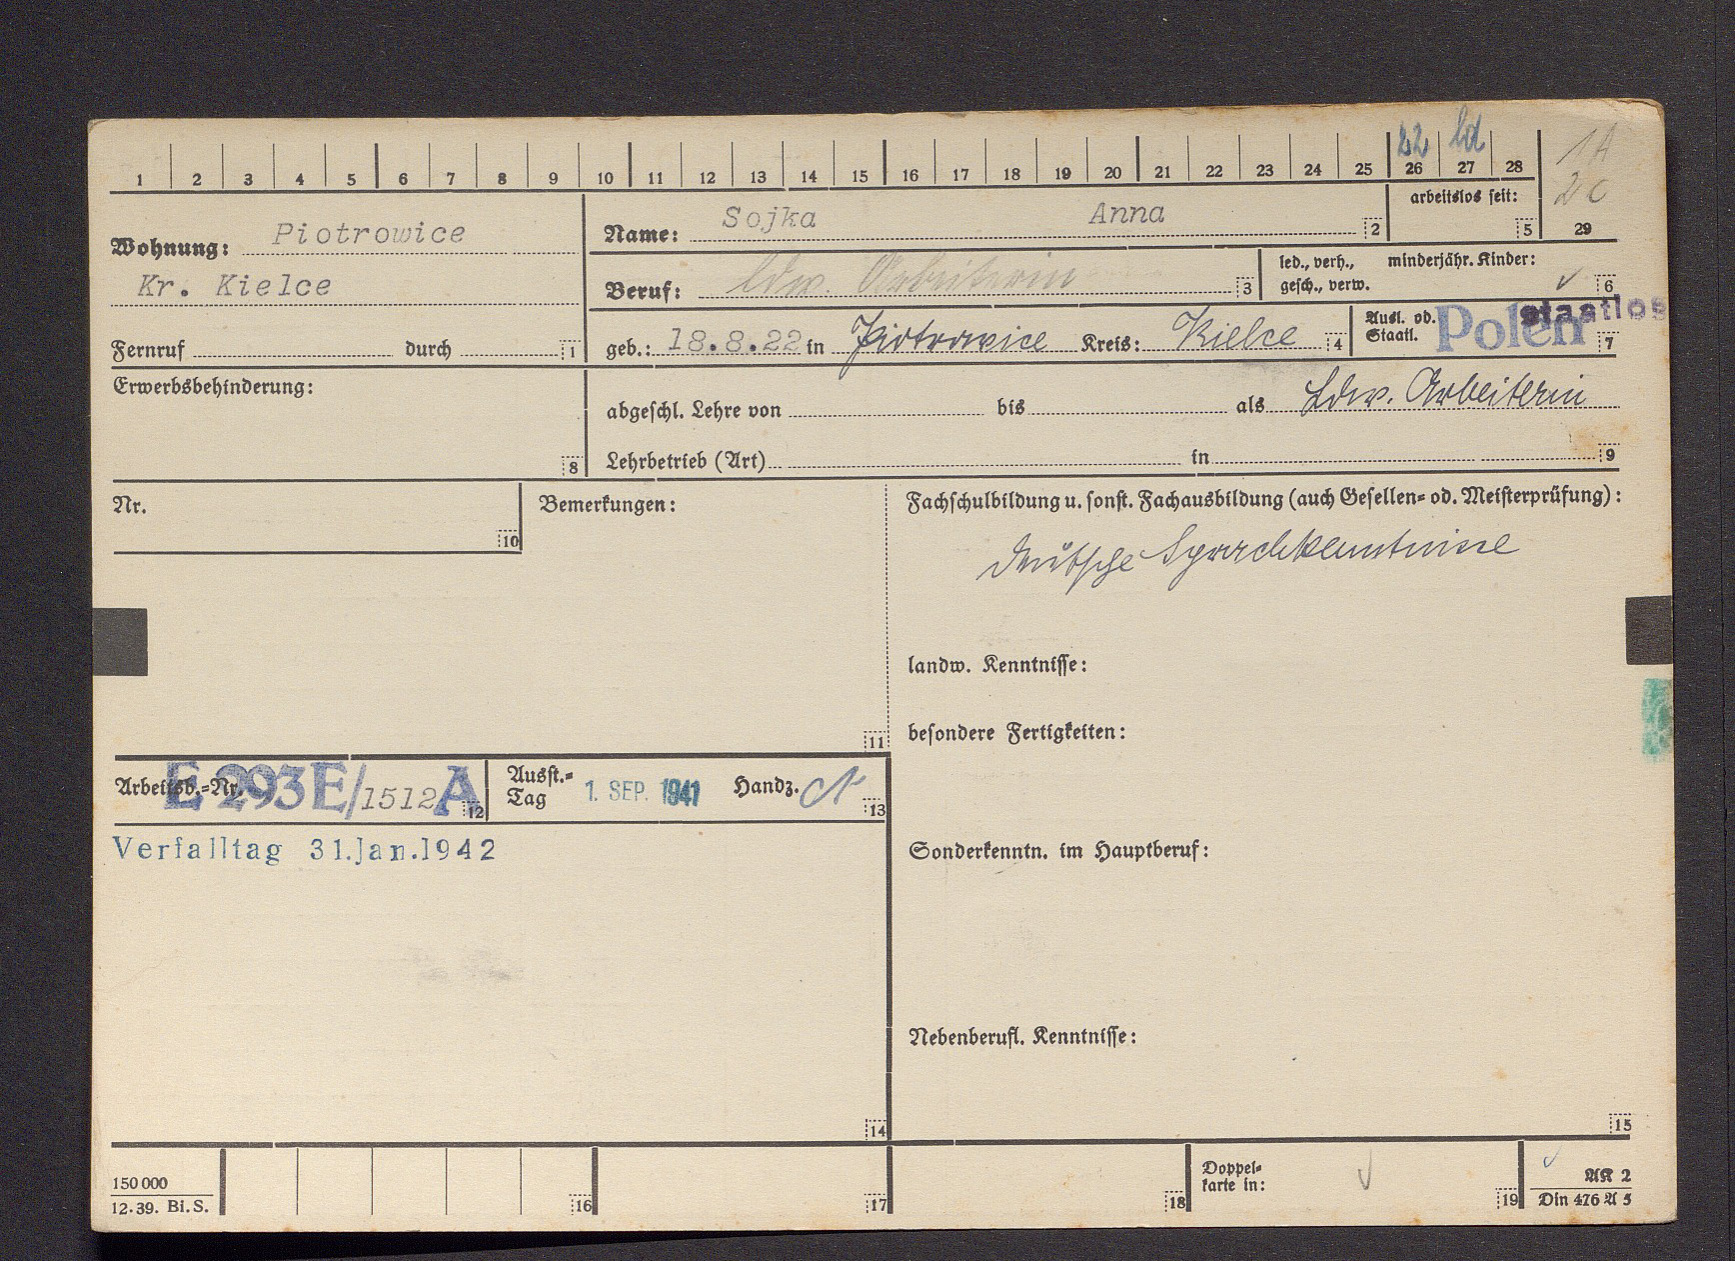 22 ld
1 2 3 4 5 6 7 8 9 10 11 12 13 14 15 16 17 18 19 20 21 22 23 24 25 26 27 28
1A
2c
29
Wohnung: Piotrowice
Kr. Kielce
Fernruf durch 1
Name: Sojka Anna 2
arbeitslos seit:
5
Beruf: ldw. Arbeiterin 3
led., verh., minderjähr. Kinder:
gesch., verw. 6
geb.: 18.8.22 in Piotrowice Kreis: Kielce 4
Ausl. od. Staatl. Polen staatlos 7
Erwerbsbehinderung:
8
abgeschl. Lehre von bis als Ldw. Arbeiterin
Lehrbetrieb (Art) in 9
Nr.
10
Bemerkungen:
11
Fachschulbildung u. sonst. Fachausbildung (auch Gesellen- od. Meisterprüfung):
deutsche Sprachkenntnisse
landw. Kenntnisse:
besondere Fertigkeiten:
Sonderkenntn. im Hauptberuf:
Nebenberufl. Kenntnisse:
15
Arbeitsb.-Nr. E 293E/1512A 12
Ausst.-Tag 1. SEP. 1941 Handz. 13
Verfalltag 31.Jan.1942
14
150 000
12.39. Bi.S.
16
17
18
Doppel-
karte in:
19
AK 2
Din 476 A 5